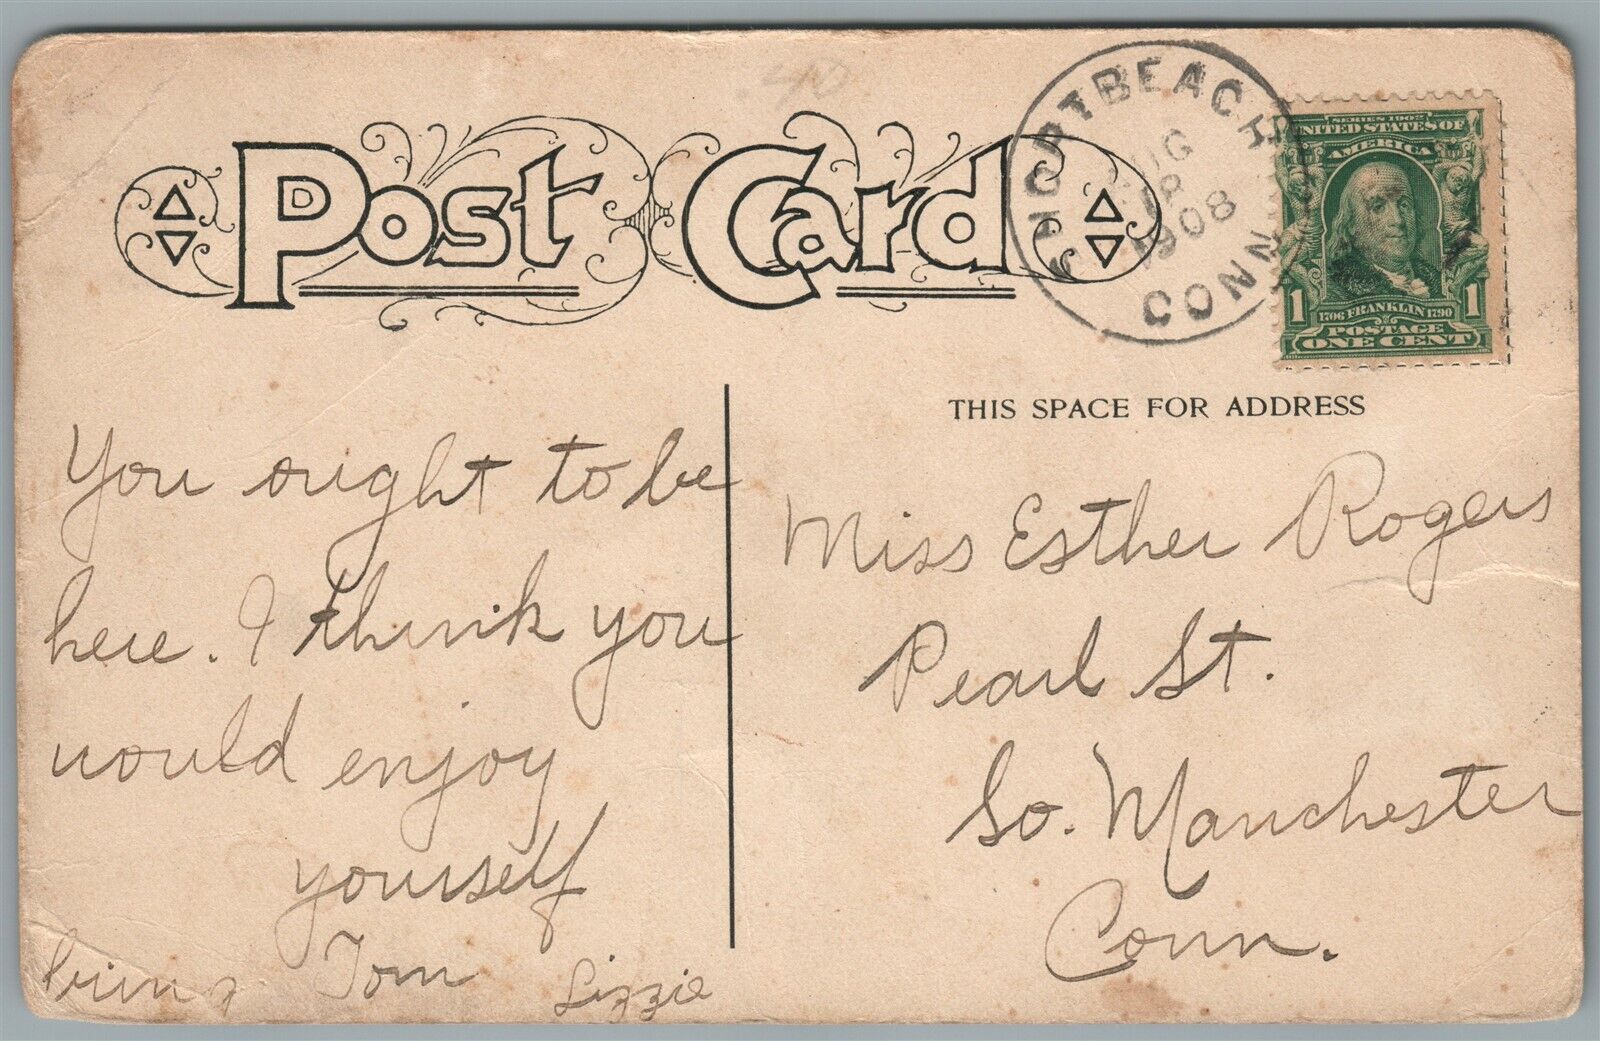 .40
Post Card
SHORT BEACH
AUG
18
1908
CONN
SERIES 1902
UNITED STATES OF
AMERICA
1 1
1706 FRANKLIN 1790
POSTAGE
ONE CENT
THIS SPACE FOR ADDRESS
You ought to be
here. I think you
would enjoy
yourself
bring Tom Lizzie
Miss Esther Rogers
Pearl St.
So. Manchester
Conn.